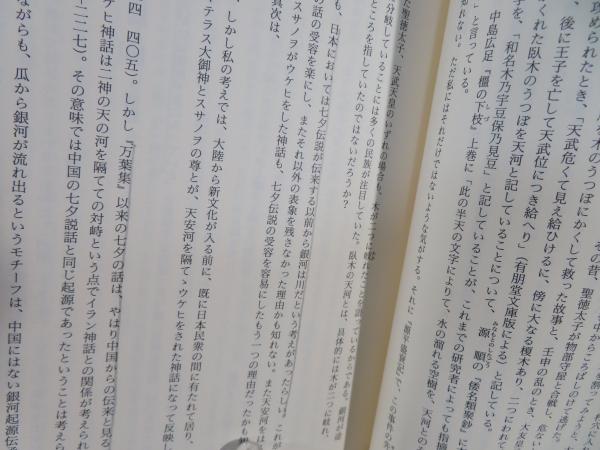 を割ってみよう」と
木のうつぼにかくして救った故事と、壬申の乱のとき、大友皇
その昔、聖徳太子が物部守屋と合戦し、危ない
攻められたとき、「天武危くて見え給ひけるに、傍に大なる榎木あり、二つにわれて
、後に王子を亡して天武位につき給へり」(有朋堂文庫版による)と記している。
くれた臥木のうつぼを天河と記していることについて、源順の『倭名類聚鈔』に
子を、「和名木乃宇豆保乃見豆」と記していることが、これまでの研究者によっても指摘
中島広足『橿の下枝』上巻に「此の半天の文字によりて、水の溜れる空樹を、天河とのそ
」と言っている。
れない。ただ私にはそれだけではないような気がする。それに『源平盛衰記』で、この事件の先
た聖徳太子、天武天皇のいずれの場合も、木が二つに
分岐していることには多くの民族が注目していた。臥木の天河とは、具体的には木が二つに岐れ、
ところを指していたのではないだろうか?
も、日本においては七夕伝説が伝来する以前から銀河は川だという考えがあったらしい。これが
の話の受容を楽にし、またそれ以外の表象を残さなかった理由かも知れない。また天安河をは
スサノヲがウケヒをした神話も、七夕伝説の受容を容易にしたもう一つの理由だったかも知
真次は、
、しかし私の考えでは、大陸から新文化が入る前に、既に日本民衆の間に有たれて居り、
テラス大御神とスサノヲの尊とが、天安河を隔てゝウケヒをされた神話になって反映し
四 四〇五)。しかし『万葉集』以来の七夕の話は、やはり中国からの伝来と見る
ケヒ神話は二神の天の河を隔てての対峙という点でイラン神話との関係が考えられ
二二七)。その意味では中国の七夕説話と同じ起源であったということは考えら
ながらも、瓜から銀河が流れ出るというモチーフは、中国にはない銀河起源伝